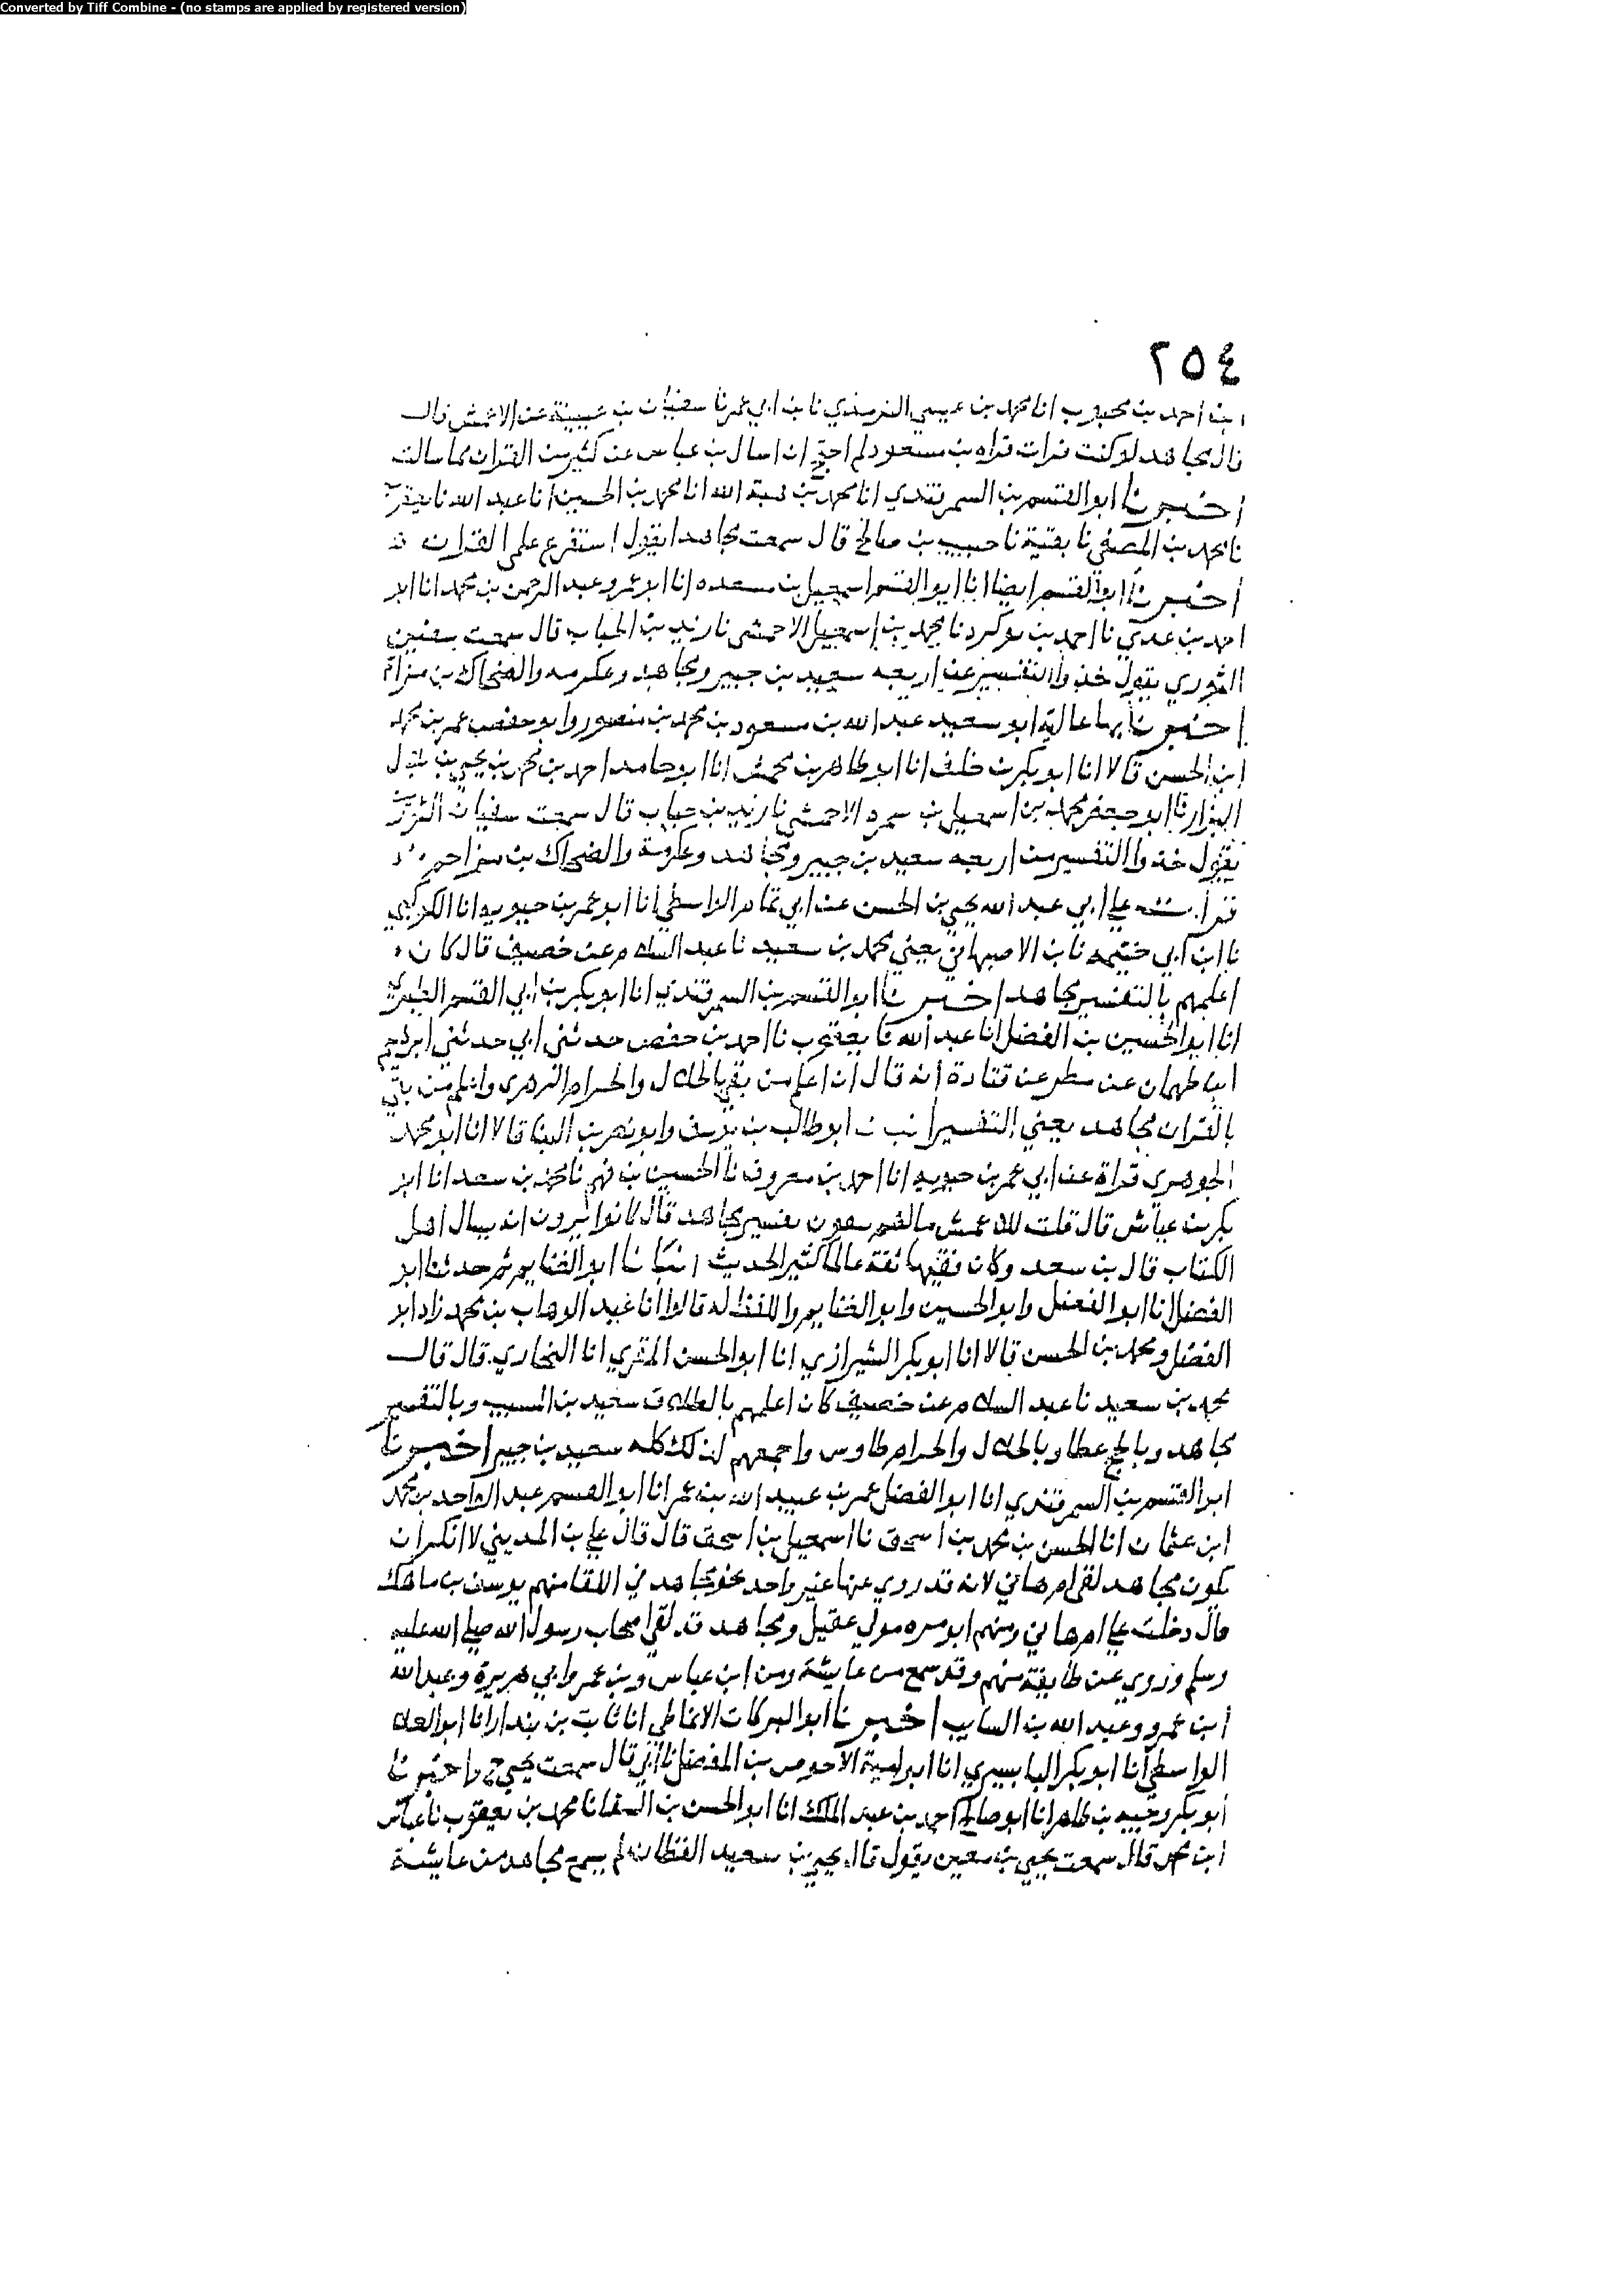 Converted by Tiff Combine - (no stamps are applied by registered version)
٢٥٤
ابن احمد بن محبوب انا محمد بن عيسى الترمذي نا بن ابي عمر نا سفيان بن عيينة عن الاعمش قال
قال مجاهد لو كنت قرات قراه بن مسعود لم احتج ان اسال بن عباس عن كثير من القران مما سالت
اخبرنا ابو القسم بن السمرقندي انا محمد بن هبة الله انا محمد بن الحسين انا عبد الله نا يعقوب
نا محمد بن المصفى نا بقية نا حبيب بن صالح قال سمعت مجاهدا يقول استفرغ علمي القران
اخبرنا ابو القسم ايضا انا ابو القسم اسمعيل بن مسعده انا ابو عمرو عبد الرحمن بن محمد انا ابو
احمد بن عدي نا احمد بن نا محمد بن إسمعيل الاحمسي نا زيد بن الحباب قال سمعت سفين
الثوري يقول خذوا التفسير عن اربعه سعيد بن جبير ومجاهد وعكرمه والضحاك بن مزاحم
اخبرنا بها عاليه ابو سعيد عبد الله بن مسعود بن محمد بن منصور وابو حفص عمر بن محمد
ابن الحسن قالا انا ابو بكر بن خلف انا ابو طاهر بن محمش انا ابو حامد احمد بن محمد بن يحيى بن بلال
البزار نا ابو جعفر محمد بن اسمعيل بن سمره الاحمسي نا زيد بن حباب قال سمعت سفيان الثوري
يقول خذوا التفسير من اربعه سعيد بن جبير ومجاهد وعكرمة والضحاك بن مزاحم
قرات على ابي عبد الله يحيى بن الحسن عن ابي تمام الواسطي انا ابو عمر بن حيويه انا الكوكبي
نا ابن ابي خيثمه نا بن الاصبهاني يعني محمد بن سعيد نا عبد السلام عن خصيف قال كان
اعلمهم بالتفسير مجاهد اخبرنا ابو القسم بن السمرقندي انا ابو بكر بن ابي القسم الطبري
انا ابو الحسين بن الفضل انا عبد الله نا يعقوب نا احمد بن حفص حدثني ابي حدثني ابرهيم
ابن طهمان عن مطر عن قتادة انه قال ان اعلم من بقي بالحلال والحرام الزهري واعلم من بقي
بالقران مجاهد يعني التفسير انبانا ابو طالب بن يوسف وابو نصر بن البنا قالا انا ابو محمد
الجوهري قراة عن ابي عمر بن حيويه انا احمد بن معروف نا الحسين بن فهم نا محمد بن سعد انا ابو
بكر بن عياش قال قلت للاعمش ما لهم يتقون تفسير مجاهد قال كانوا يرون انه يسال اهل
الكتاب قال بن سعد وكان فقيها ثقة عالما كثير الحديث انبانا ابو الغنايم ثم حدثنا ابو
الفضل انا ابو الفضل وابو الحسين وابو الغنايم واللفظ له قالوا انا عبد الوهاب بن محمد زاد ابو
الفضل ومحمد بن الحسن قالا انا ابو بكر الشيرازي انا ابو الحسن المقري انا البخاري قال قال
محمد بن سعيد نا عبد السلام عن خصيف كان اعلمهم بالطلاق سعيد بن المسيب وبالتفسير
مجاهد وبالحج عطا وبالحلال والحرام طاوس واجمعهم لذلك كله سعيد بن جبير اخبرنا
ابو القسم بن السمرقندي انا ابو الفضل عمر بن عبيد الله بن عمر انا ابو القسم عبد الواحد بن محمد
ابن عثمان انا الحسن بن محمد بن اسحق نا اسمعيل بن اسحق قال قال علي بن المديني لا انكر ان
يكون مجاهد لقي ام هاني لانه قد روي عنها غير واحد نحو مجاهد في اللقا منهم يوسف بن ماهك
قال دخلت على ام هاني ومنهم ابو مره مولى عقيل ومجاهد قد لقي اصحاب رسول الله صلى الله عليه
وسلم وروي عن طايفة منهم وقد سمع من عايشة ومن ابن عباس وبن عمر وابي هريرة وعبد الله
ابن عمرو وعبد الله بن السايب اخبرنا ابو البركات الانماطي انا ثابت بن بندار انا ابو العلا
الواسطي انا ابو بكر البابسيري انا ابو امية الاحوص بن المفضل نا ابي قال سمعت يحيى ح واخبرنا
ابو بكر وجيه بن طاهر انا ابو صالح احمد بن عبد الملك انا ابو الحسن بن السقا نا محمد بن يعقوب نا عباس
ابن محمد قال سمعت يحيى بن معين يقول قال يحيى بن سعيد القطان لم يسمع مجاهد من عايشة